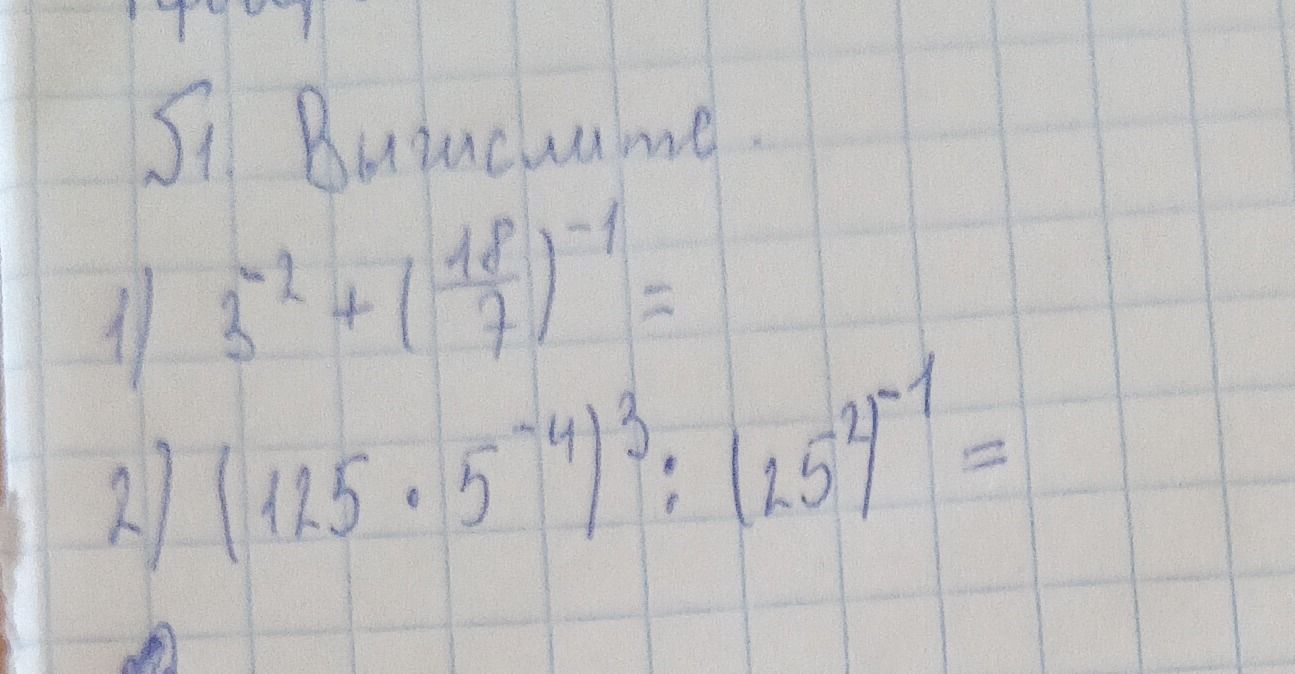 №1. Вычислите.
1) 3⁻² + (18/7)⁻¹ =
2) (125 · 5⁻⁴)³ : (25²)⁻¹ =